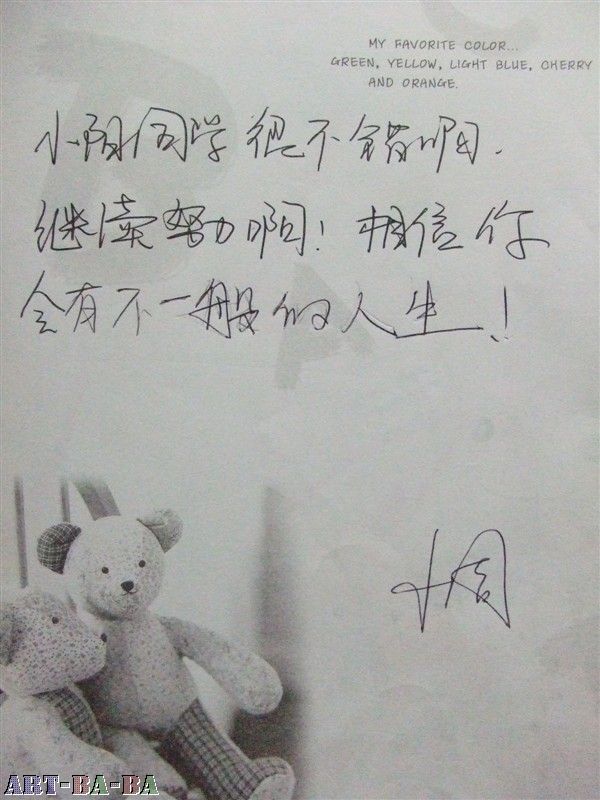 MY FAVORITE COLOR...
GREEN, YELLOW, LIGHT BLUE, CHERRY
AND ORANGE.
小阳同学很不错啊.
继续努力啊！相信你
会有不一般的人生！
ART-BA-BA